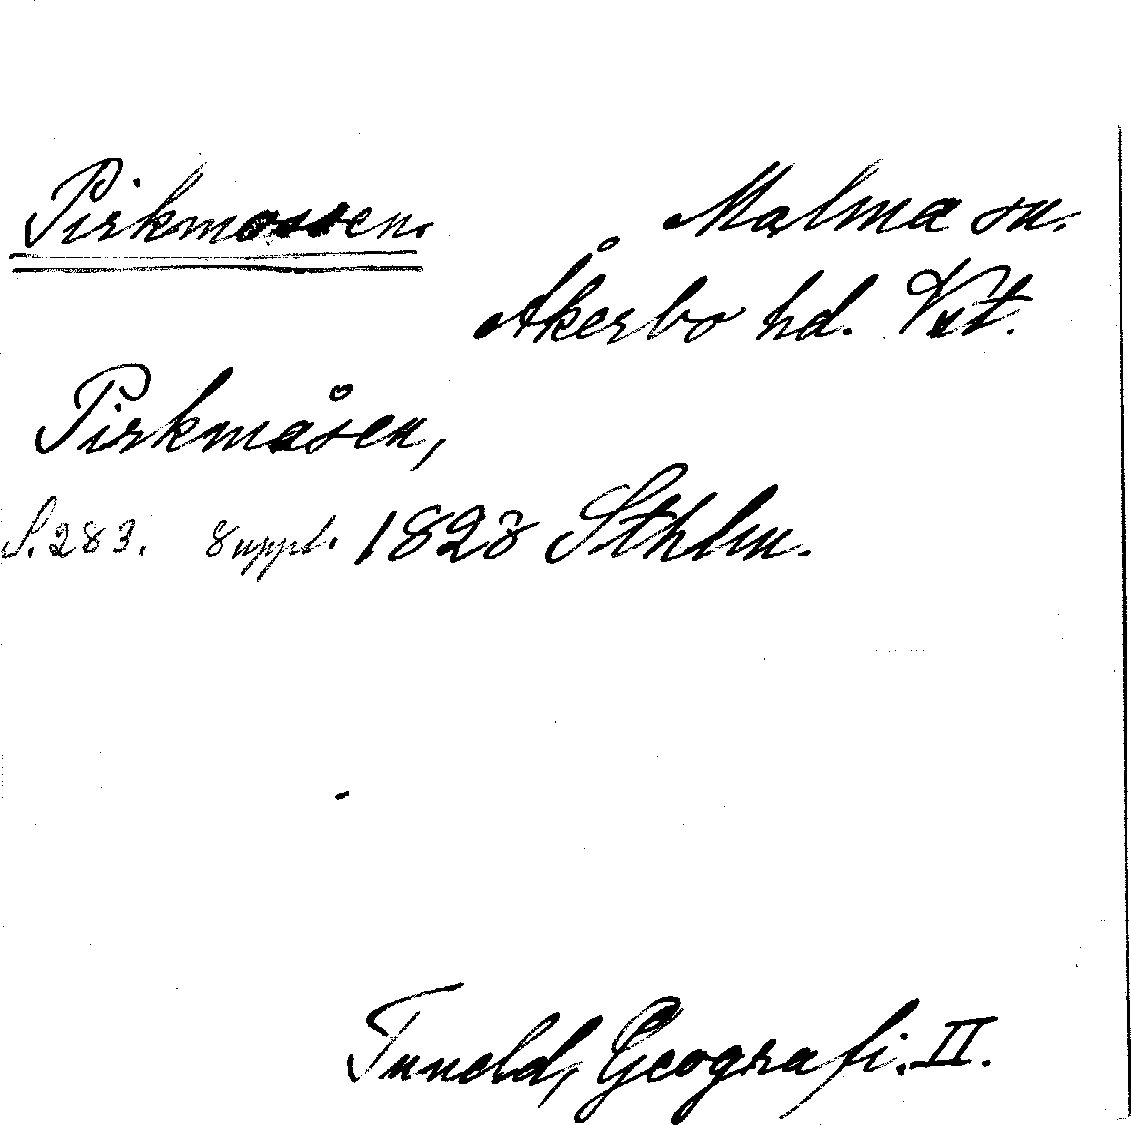 Pirkmossen. Malma sn.
Åkerbo hd. Vstm.
Pirkmåsen,
S. 283. Suppl. 1828 Sthlm.
Tuneld, Geografi. II.